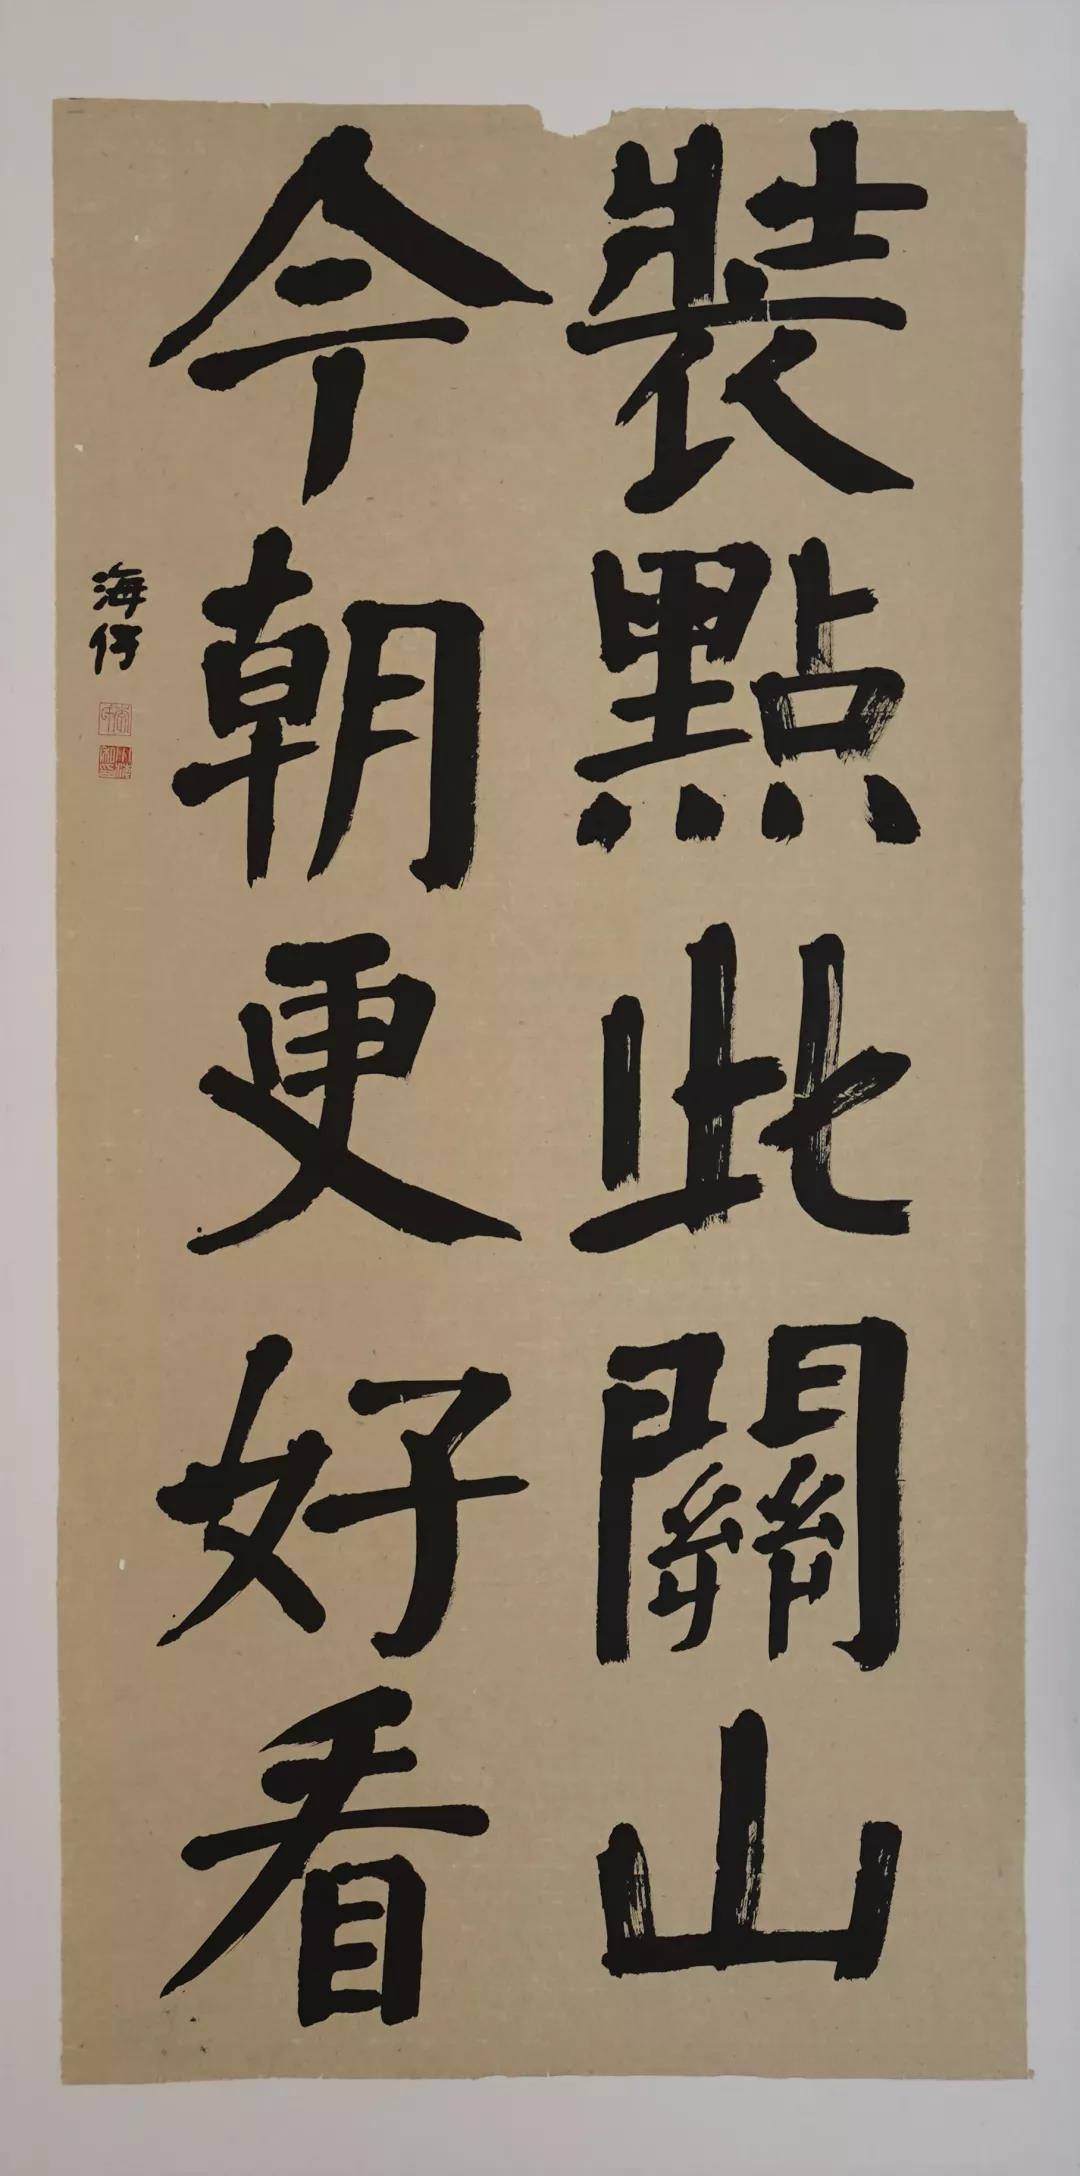 裝點此關山
今朝更好看
海伃